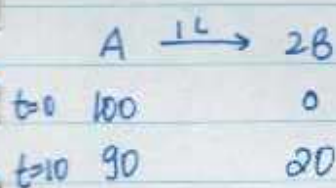 A 1L → 2B
t=0 100 0
t=10 90 20